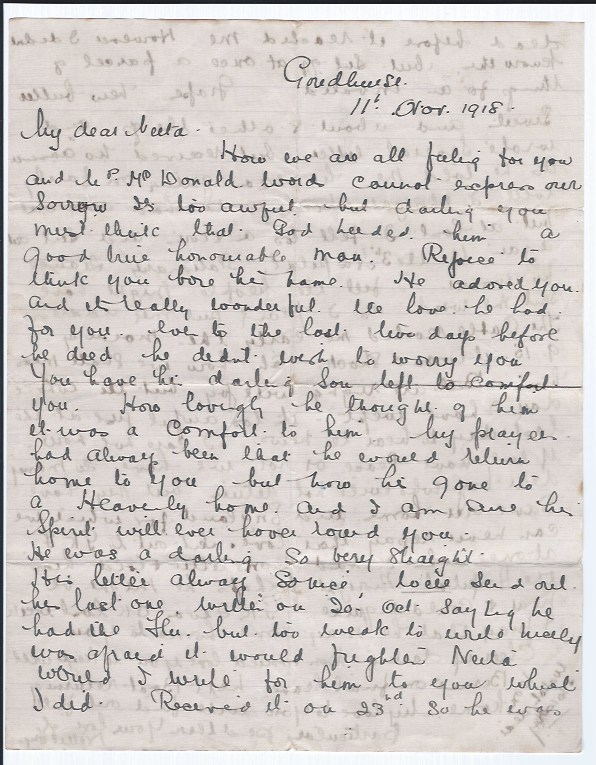 Goudhurst.
11th Nov. 1918.
My dear Neeta.
How we are all feeling for you
and Mrs McDonald words cannot express our
Sorrow is too awful. but darling you
must think that God needed him a
good true honourable man. Rejoice to
think you bore his name. He adored you.
and it really wonderful the love he had
for you. Even to the last two days before
he died he didn't wish to worry you
You have his darling Son left to comfort
you. How lovingly he thought of him
it was a comfort to him. My prayer
had always been that he would return
home to you but now he's gone to
a Heavenly home. and I am sure his
Spirit will ever hover round you
He was a darling so very straight.
His letter always so nice, will send out
his last one. written on 20th Oct. saying he
had the Flu. but too weak to write really
was afraid it would frighten Neeta
would I write for him to you which
I did. Received it on 23rd so he was